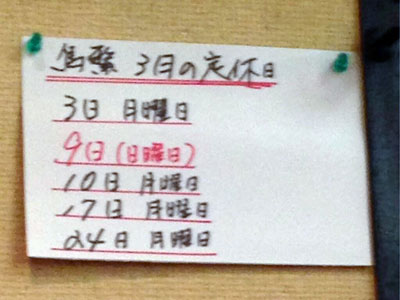 馬繋 3月の定休日
3日 月曜日
9日(日曜日)
10日 月曜日
17日 月曜日
24日 月曜日